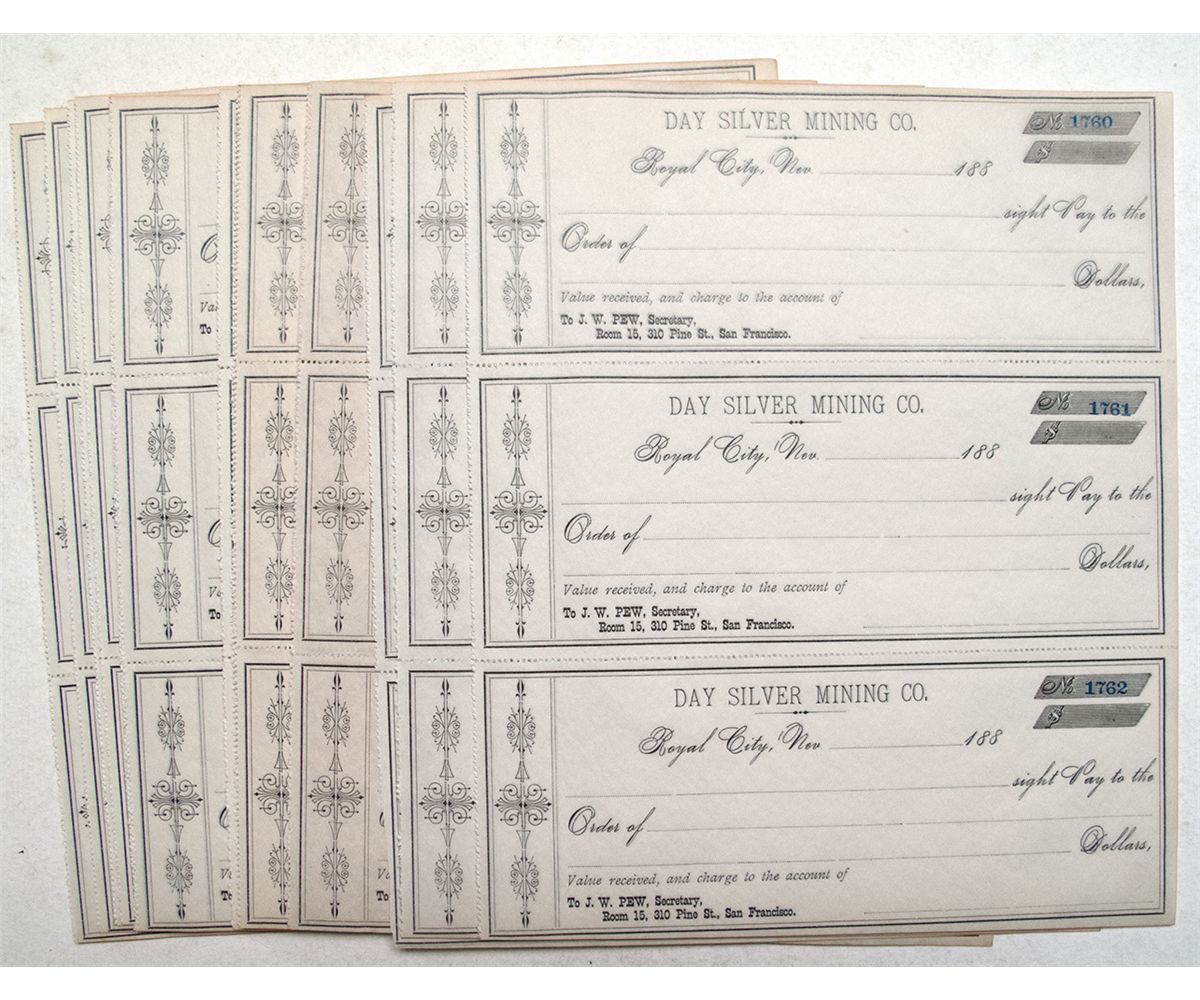 DAY SILVER MINING CO.
No 1760
Royal City, Nev. 188
$
sight Pay to the
Order of
Dollars,
Value received, and charge to the account of
To J. W. PEW, Secretary,
Room 15, 310 Pine St., San Francisco.
DAY SILVER MINING CO.
No 1761
Royal City, Nev. 188
$
sight Pay to the
Order of
Dollars,
Value received, and charge to the account of
To J. W. PEW, Secretary,
Room 15, 310 Pine St., San Francisco.
DAY SILVER MINING CO.
No 1762
Royal City, Nev. 188
$
sight Pay to the
Order of
Dollars,
Value received, and charge to the account of
To J. W. PEW, Secretary,
Room 15, 310 Pine St., San Francisco.